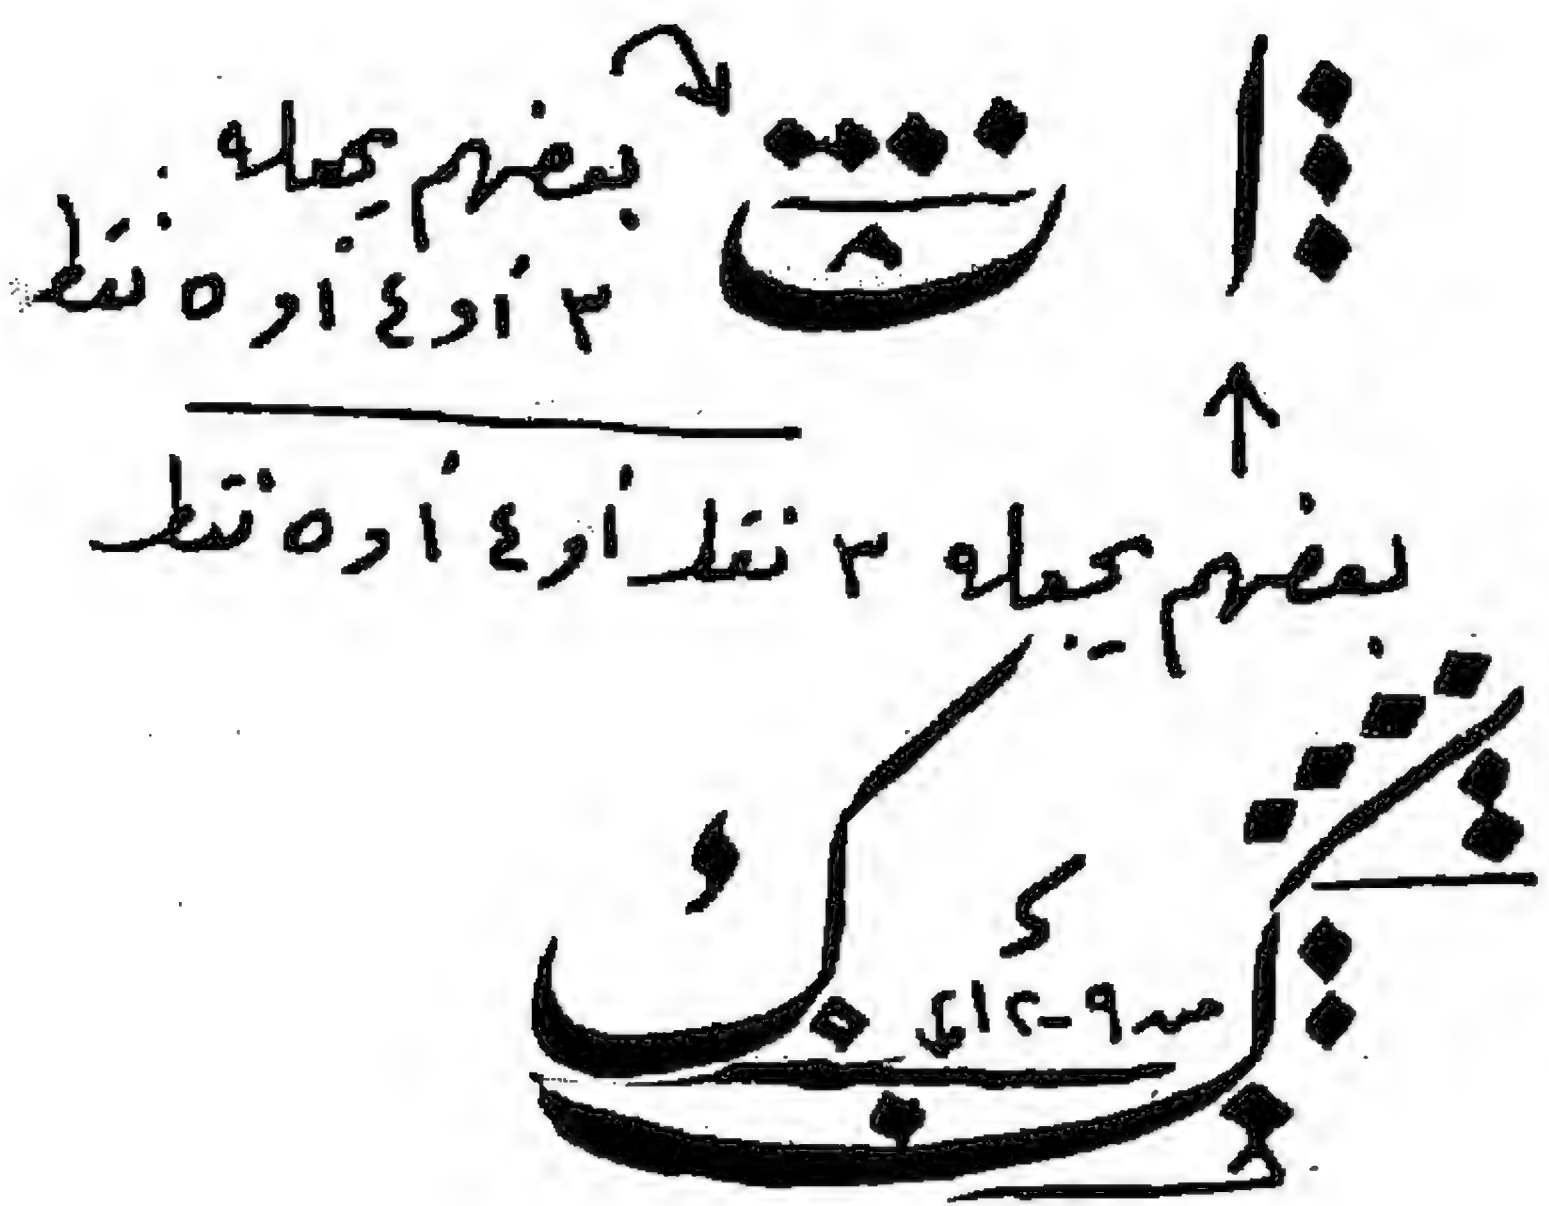 بعضهم يجعله
٣ أو ٤ أو ٥ نقط
بعضهم يجعله ٣ نقط أو ٤ أو ٥ نقط
من ٩ - ١٢ أي